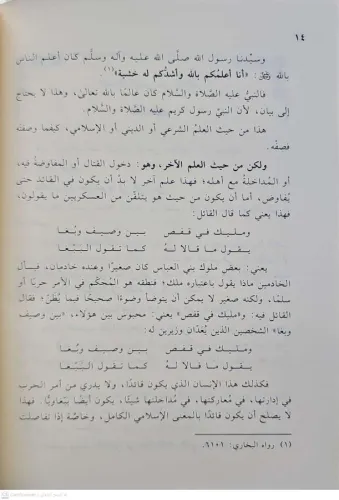 ١٤
وسيّدنا رسول الله صلّى الله عليه وآله وسلّم كان أعلم الناس
بالله ﷻ: «أنا أعلمكم بالله وأشدّكم له خشية»(١).
فالنبي عليه الصّلاة والسّلام كان عالمًا بالله تعالى، وهذا لا يحتاج
إلى بيان، لأن النبيّ رسول كريم عليه الصّلاة والسّلام.
هذا من حيث العلمُ الشرعي أو الديني أو الإسلامي، كيفما وصفتَه
فصِفْه.
ولكن من حيث العلم الآخر، وهو: دخول القتال أو المفاوضة فيه،
أو المُداخلة مع أهله؛ فهذا علم آخر لا بدّ أن يكون في القائد حتى
يُفاوض، أما أن يكون من حيث هو يتلقّن من العسكريين ما يقولون،
فهذا يعني كما قال القائل:
ومليك في قفص بين وصيف وبُغا
يقول ما قالا لهُ كما تقول البَبَّغا
يعني: بعض ملوك بني العباس كان صغيرًا وعنده خادمان، فيسأل
الخادمين ماذا يقول باعتباره ملك؛ فنطقه هو المُحكّم في الأمر حربًا أو
سلمًا، ولكنه صغير لا يمكن أن يتوضأ وضوءًا صحيحًا فيما يُظنّ؛ فقال
القائل فيه: و«مليك في قفص» محبوس بين هؤلاء، «بين وصيف
وبغا» الشخصين الذين يُعَدّان وزيرين له:
ومليك في قفص بين وصيف وبُغا
يقول ما قالا لهُ كما تقول البَبَّغا
فكذلك هذا الإنسان الذي يكون قائدًا، ولا يدري من أمر الحرب
في إدارتها، في معاركتها، في مداخلتها شيئًا، يكون أيضًا ببغاويًا. فهذا
لا يصلح أن يكون قائدًا بالمعنى الإسلامي الكامل، وخاصّة إذا تفاصلت
(١) رواه البخاري: ٦١٠١.